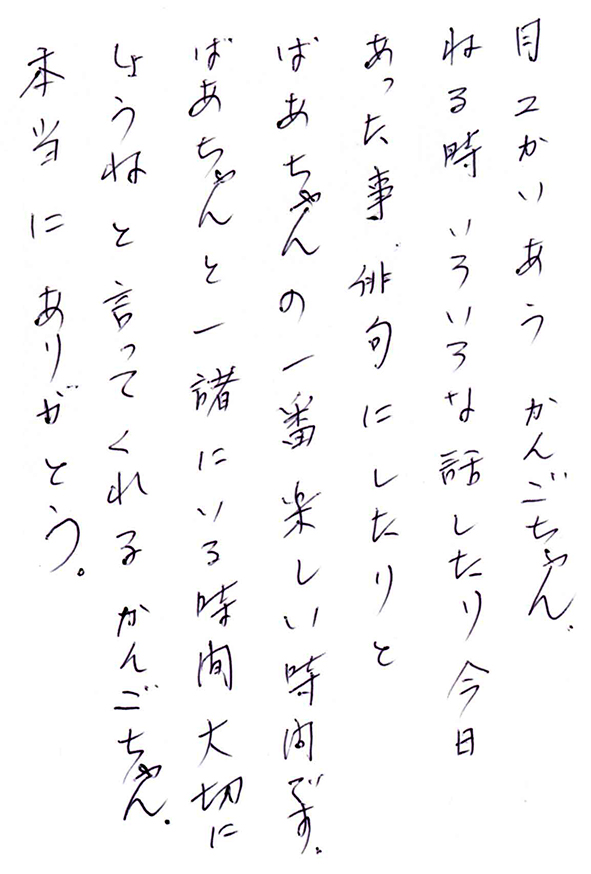 月2かいあう かんごちゃん。
ねる時 いろいろな話したり 今日
あった事 俳句にしたりと
ばあちゃんの一番楽しい時间です。
ばあちゃんと一諸にいる時间大切に
しようねと言ってくれる かんごちゃん。
本当に ありがとう。